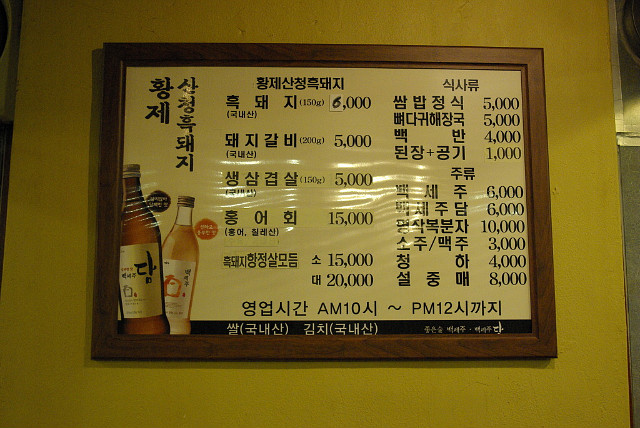 황제
산청흑돼지
황제산청흑돼지
흑돼지(150g) 6,000
(국내산)
돼지갈비(200g) 5,000
(국내산)
생삼겹살(150g) 5,000
(국내산)
홍어회 15,000
(홍어, 칠레산)
흑돼지항정살모듬 소 15,000
대 20,000
식사류
쌈밥정식 5,000
뼈다귀해장국 5,000
백반 4,000
된장+공기 1,000
주류
백세주 6,000
백세주담 6,000
명작복분자 10,000
소주/맥주 3,000
청하 4,000
설중매 8,000
영업시간 AM10시 ~ PM12시까지
쌀(국내산) 김치(국내산)
좋은술 백세주 · 백세주담
담
백세주